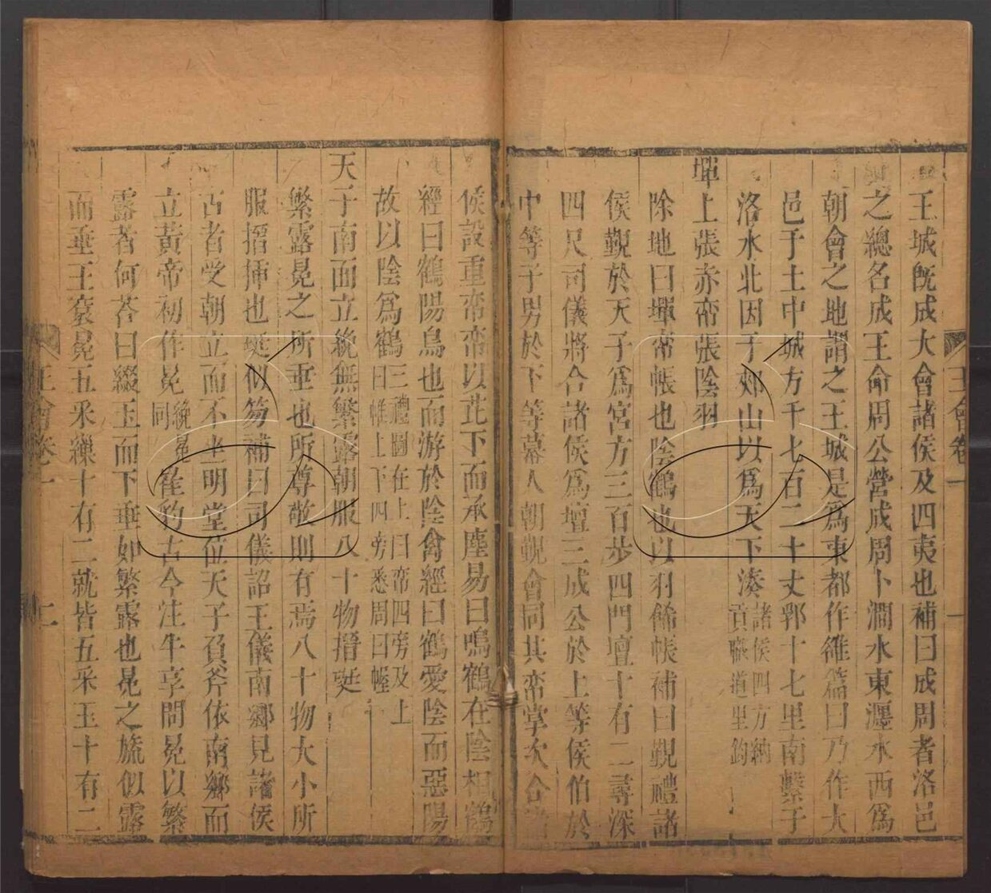 王城既成大會諸侯及四夷也補曰成周者洛邑
之總名成王命周公營成周卜澗水東瀍水西爲
朝會之地謂之王城是爲東都作雒篇曰乃作大
邑于土中城方千七百二十丈郛十七里南繫于
洛水北因于郟山以爲天下湊諸侯四方納貢職道里鈞
墠上張赤帟張陰羽
除地曰墠帟帳也陰鶴也以羽飾帳補曰覲禮諸
侯覲於天子爲宮方三百步四門壇十有二尋深
四尺司儀將合諸侯爲壇三成公於上等侯伯於
中等子男於下等幕人朝覲會同共帟掌次合諸
王會卷一
一
侯設重帟帟以在下而承塵易曰鳴鶴在陰相鶴
經曰鶴陽鳥也而游於陰禽經曰鶴愛陰而惡陽
故以陰爲鶴三禮圖在上曰帟四旁及上曰帷上下四旁悉周曰幄
天子南面立絻無繁露朝服八十物搢珽
繁露冕之所垂也所尊敬則有焉八十物大小所
服搢揷也珽似笏補曰司儀詔王儀南鄉見諸侯
古者受朝立而不坐明堂位天子負斧依南鄉而
立黃帝初作冕絻冕同崔豹古今注牛享問冕以繁
露者何荅曰綴玉而下垂如繁露也冕之旒似露
而垂王袞冕五采繅十有二就皆五采玉十有二
王會卷一
二